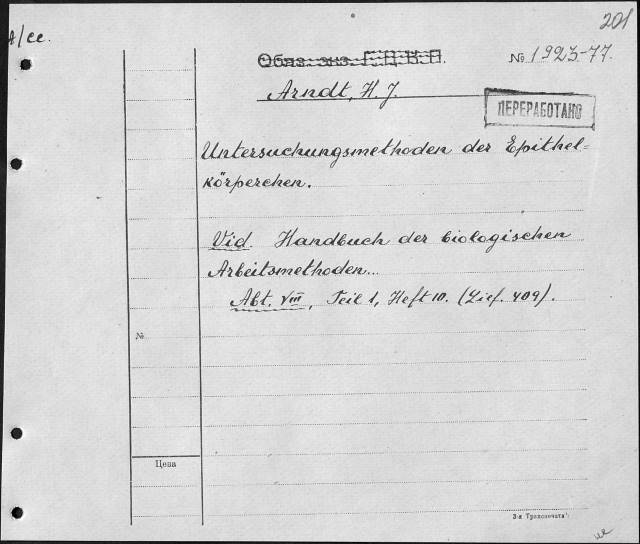 201
A/cc.
Обяз. экз. Г.Ц.К.П.
№ 1923-77.
Arndt, H. J.
ПЕРЕРАБОТАНО
Untersuchungsmethoden der Epithel=
körperchen.
Vid. Handbuch der biologischen
Arbeitsmethoden...
Abt. VIII, Teil 1, Heft 10. (Lief. 409).
№
Цена
3-я Транспечать